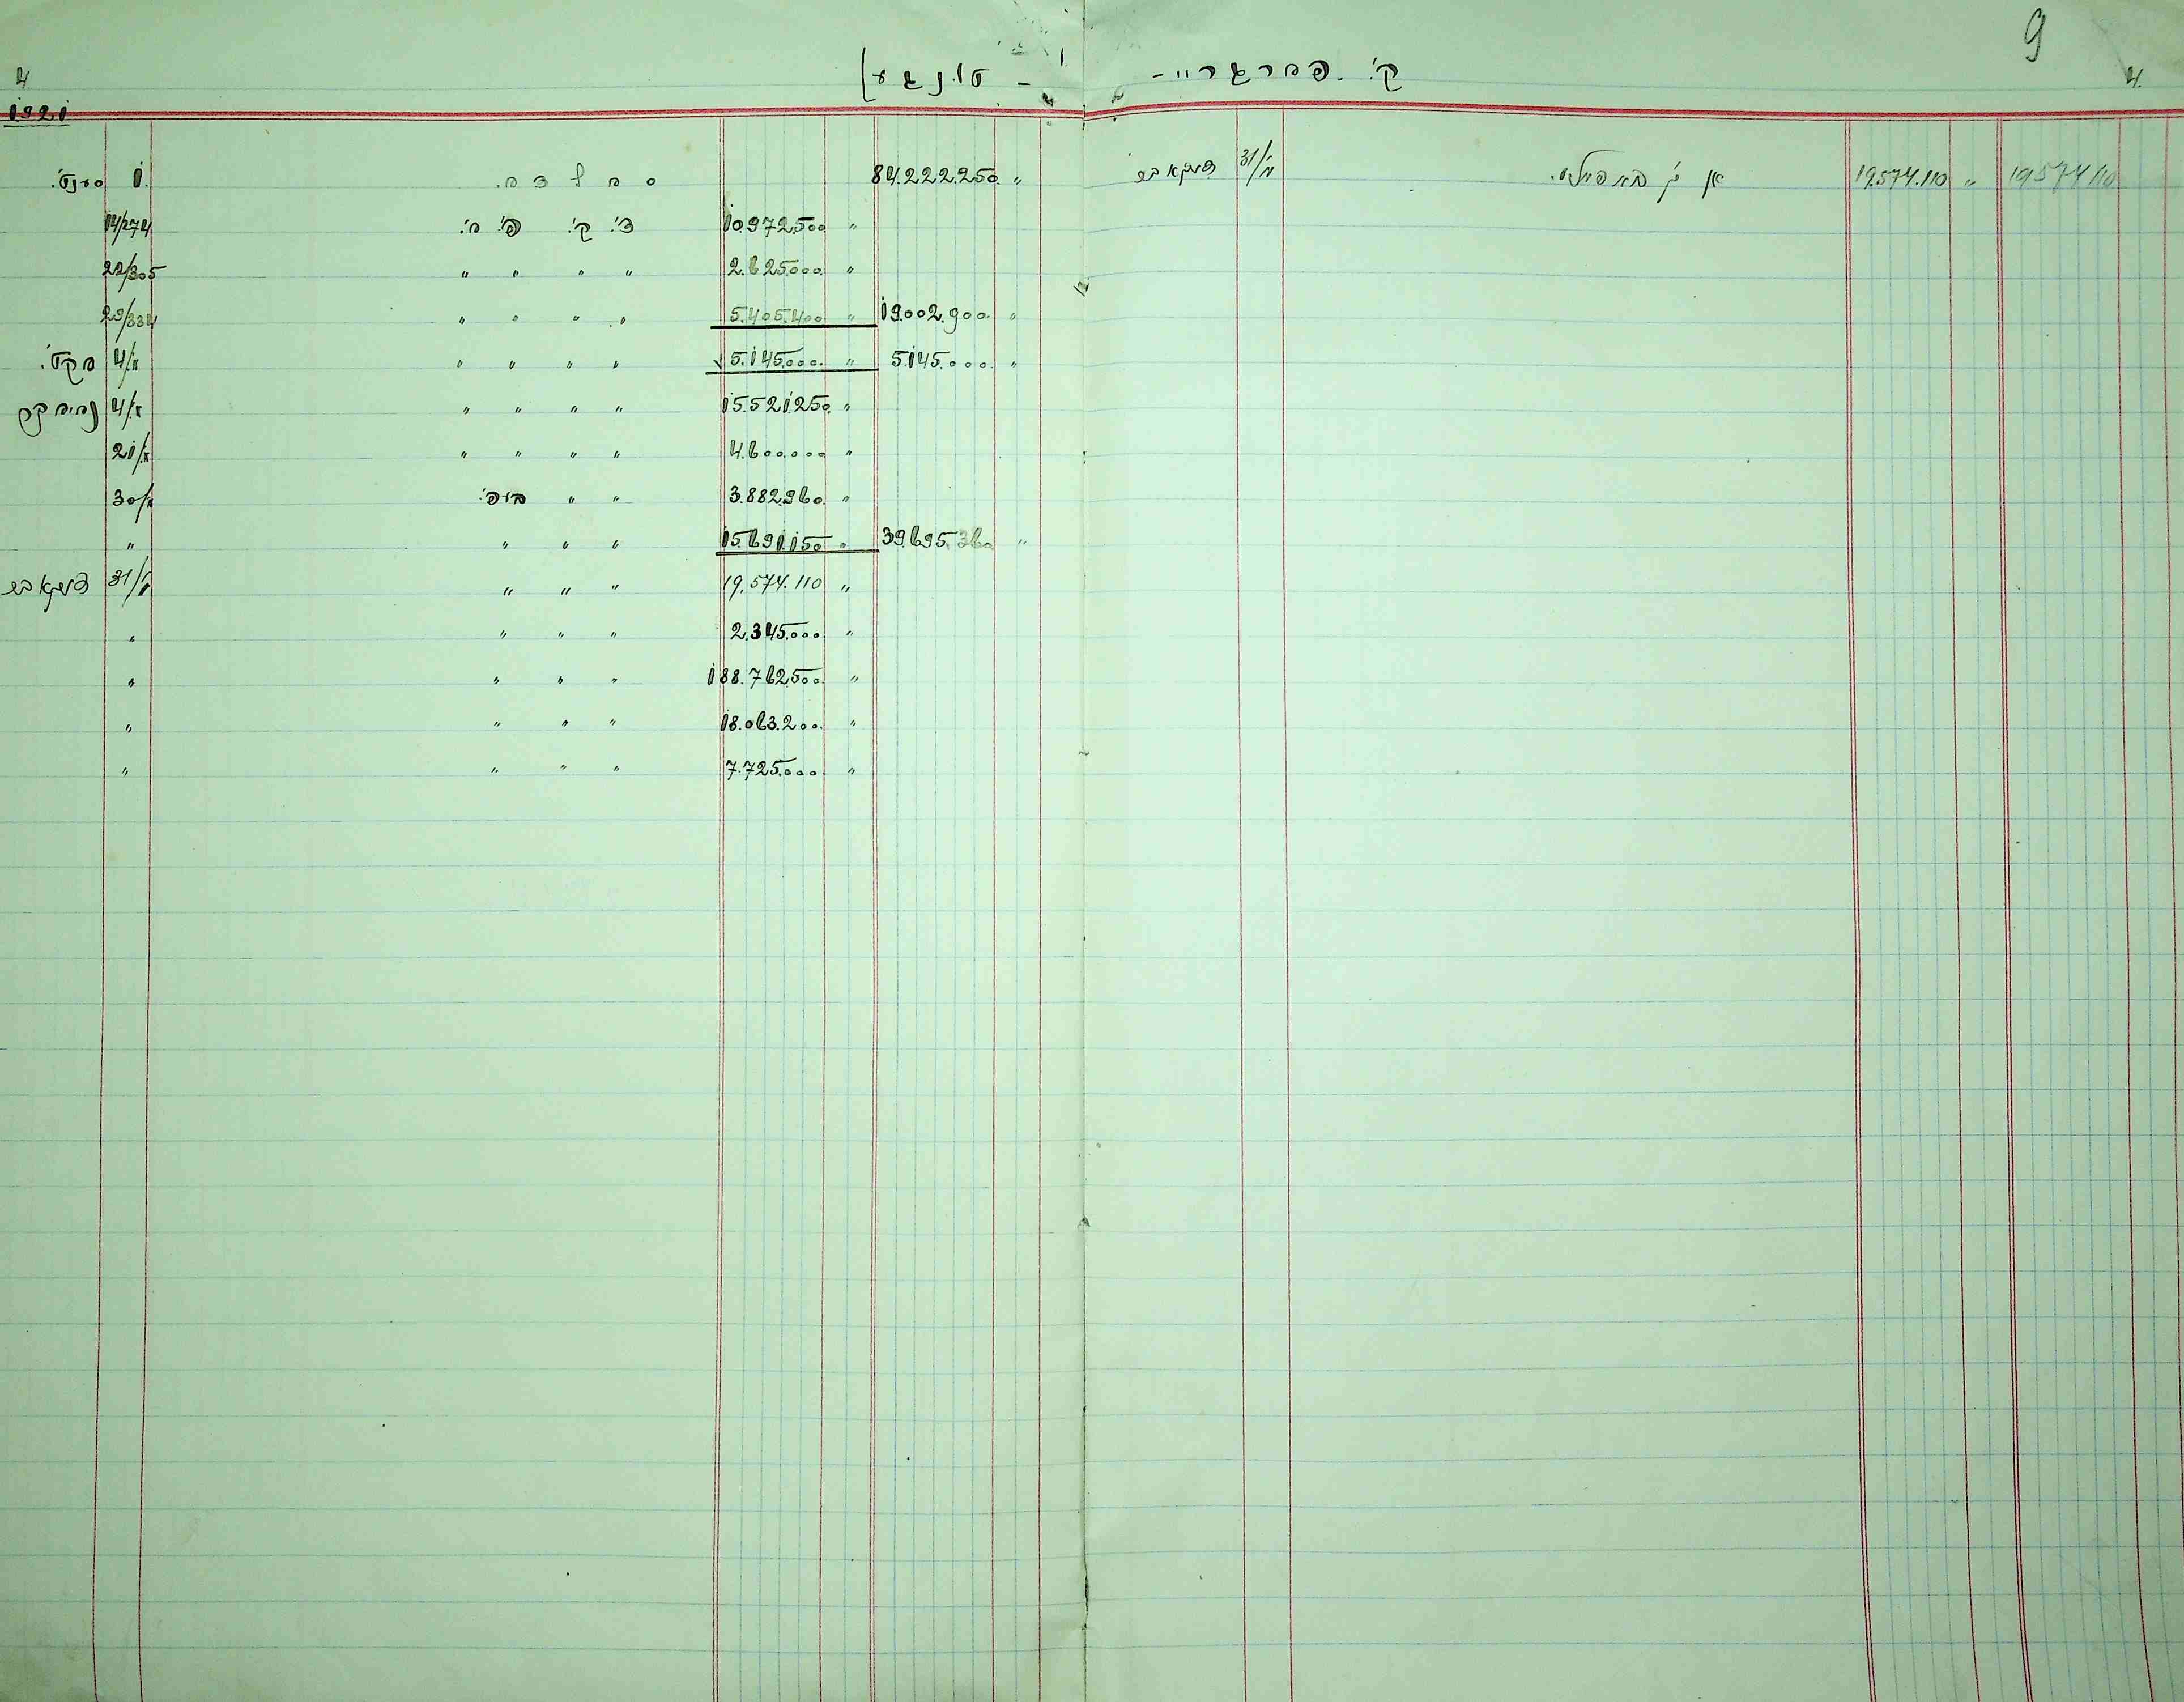 9
4 ק'. פארגריי- - טינגען 4.
1921
סענט'. 1. סאלדא. 84.222.250 "
14/274 ד'. ק'. פ'. א'. 10.972.500 "
22/305 " " " " 2.625.000 "
29/334 " " " " 5.405.400 " 19.002.900 "
אקט'. 4/x " " " " 5.145.000 " 5.145.000 "
4/x " " " " 15.521.250 "
21/x " " " " 4.600.000 "
30/x " " 3.882.960 "
" " " " 15.691.150 " 39.695.360 "
דעקאבער 31/ " " " 19.574.110 "
" " " " 2.345.000 "
" " " " 188.762.500 "
" " " " 18.063.200 "
" " " " 7.725.000 "
דעקאבער 31/ 19.574.110 " 19574110